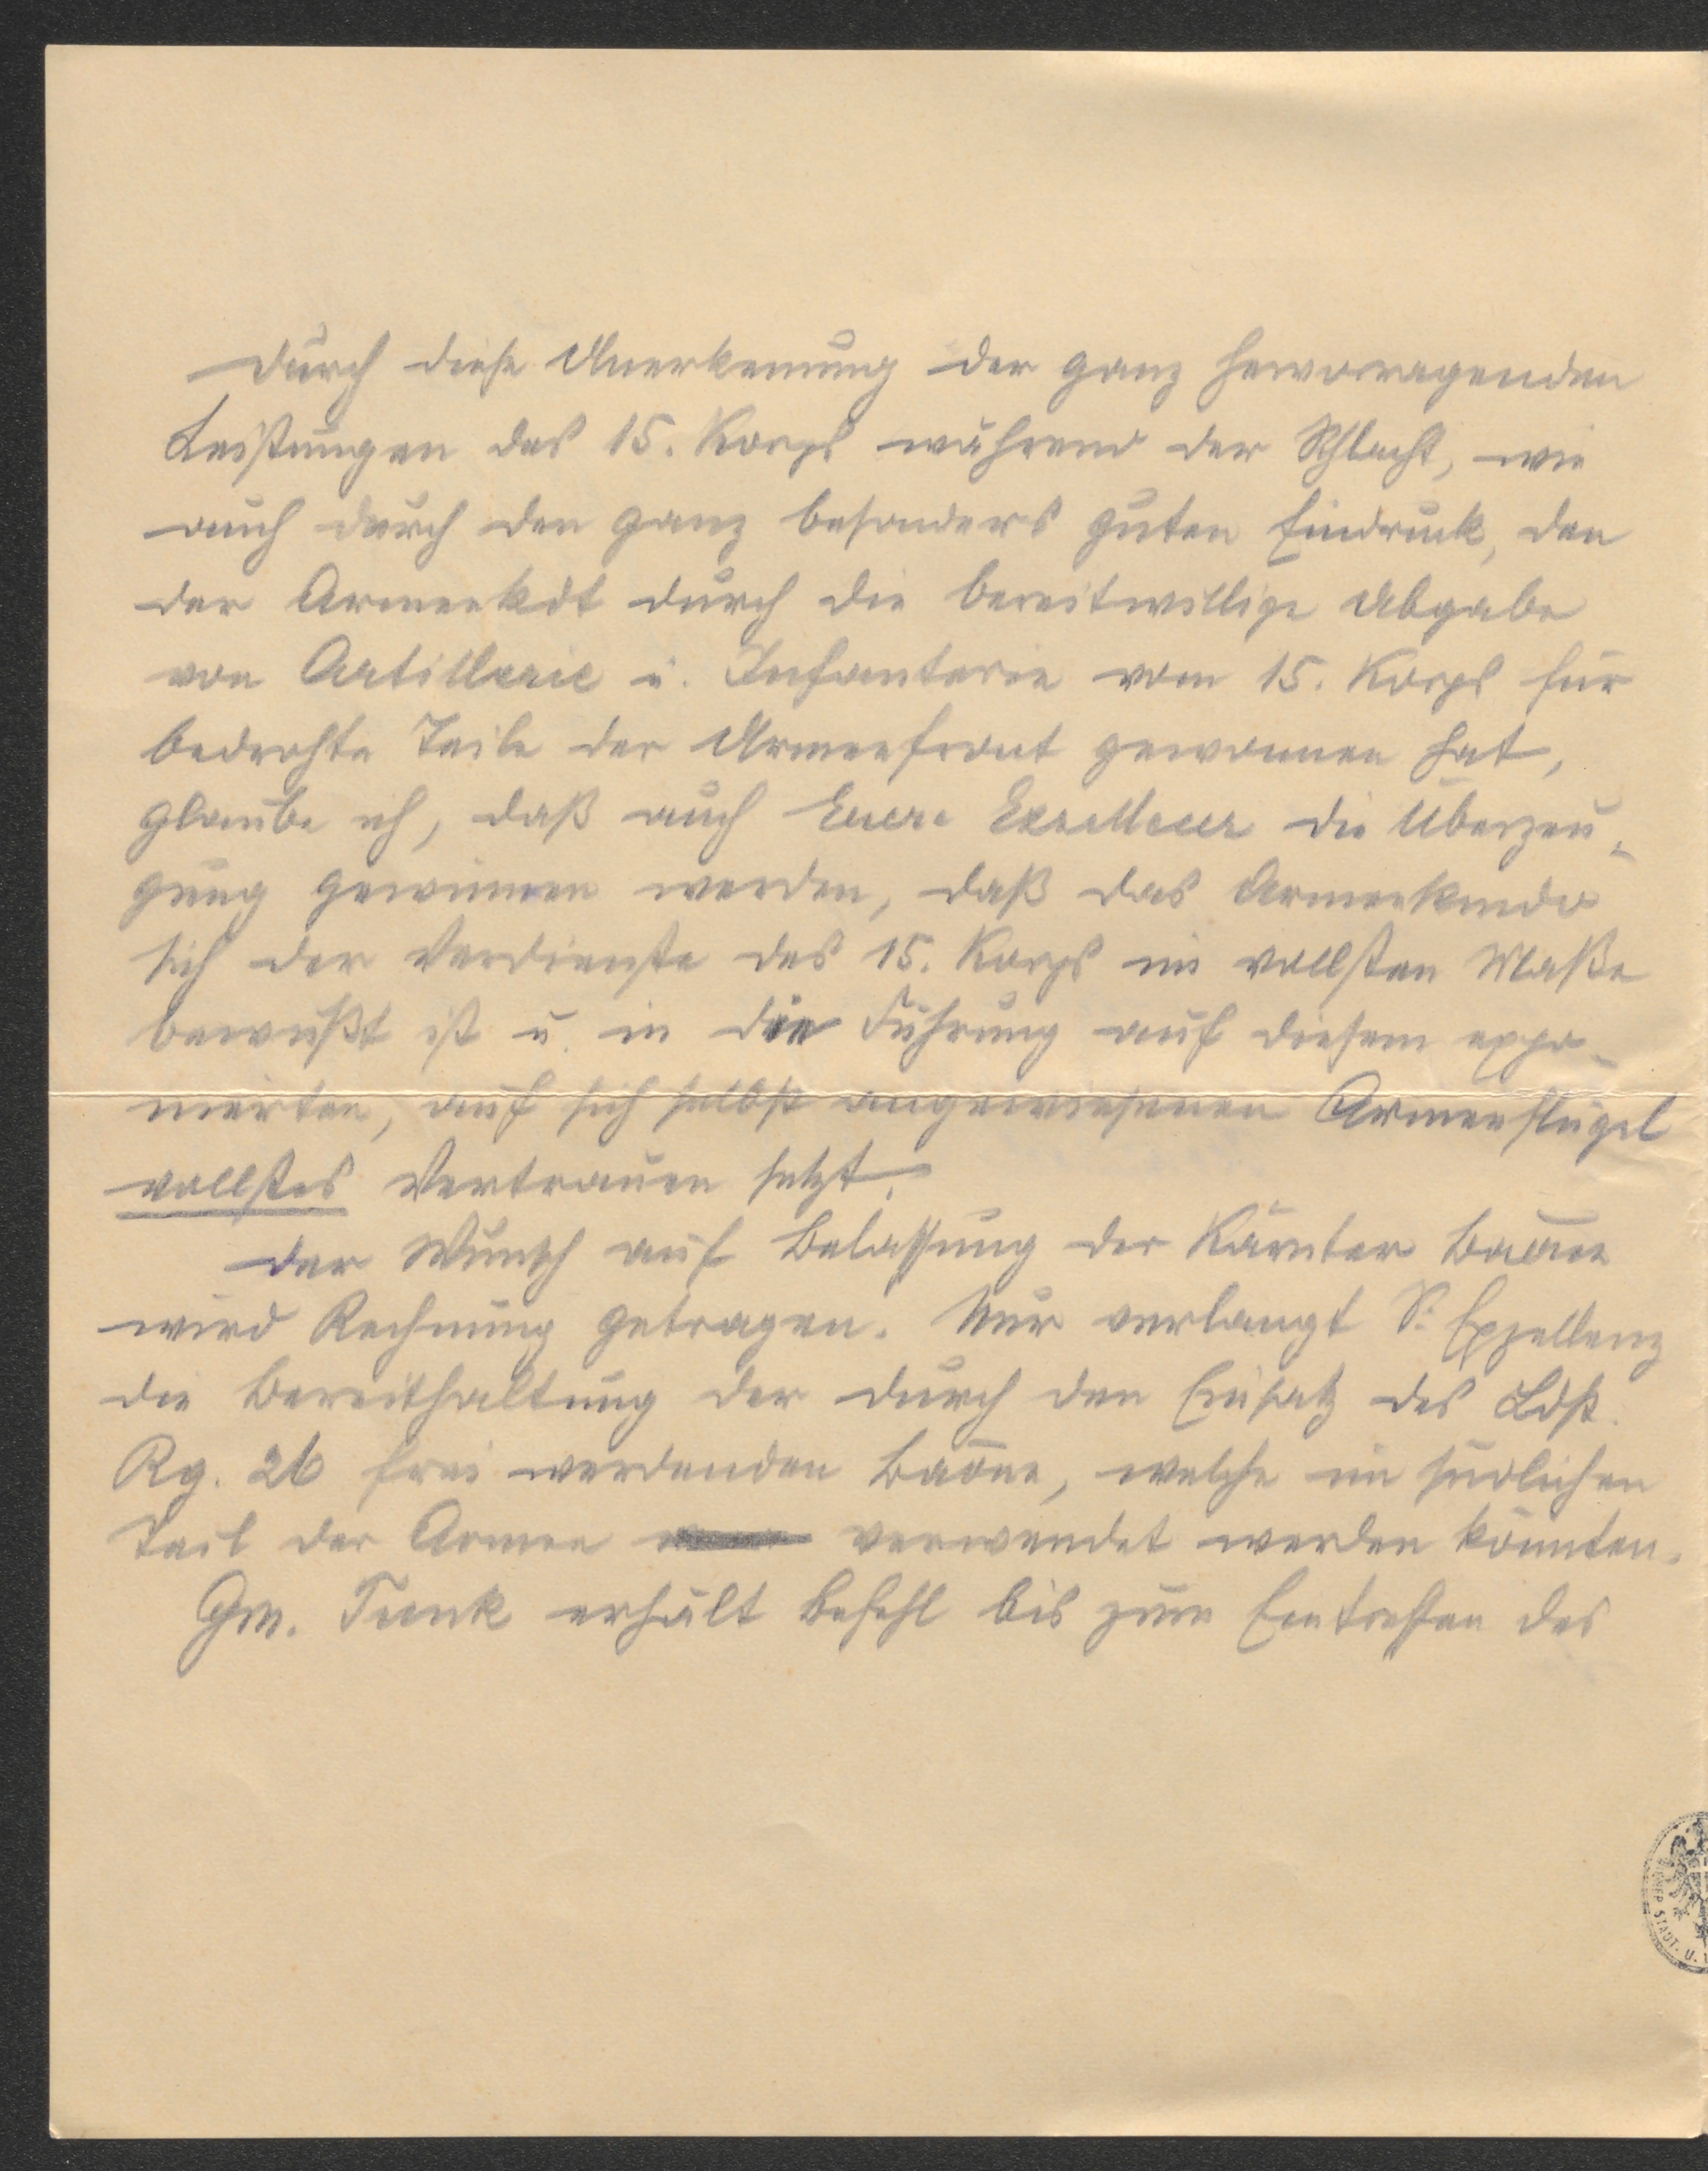 Durch diese Anerkennung der ganz hervorragenden
Leistungen des 15. Korps während der Schlacht, wie
auch durch den ganz besonders guten Eindruck, den
der Armeekdt durch die bereitwillige Abgabe
von Artillerie u. Infanterie vom 15. Korps für
bedrohte Teile der Armeefront gewonnen hat,
glaube ich, daß auch Euere Exzellenz die Überzeu-
gung gewinnen werden, daß das Armeekmdo
sich der Verdienste des 15. Korps im vollsten Maße
bewußt ist u. in die Führung auf diesem expo-
nierten, auf sich selbst angewiesenen Armeeflügel
vollstes Vertrauen setzt.
Der Wunsch auf Belassung der Kärnter Baone
wird Rechnung getragen. Nur verlangt S. Exzellenz
die Bereithaltung der durch den Einsatz des Ldst.
Rg. 26 frei werdenden Baone, welche im südlichen
Teil der Armee verwendet werden könnten.
Gm. Funk erhält Befehl bis zum Eintreffen des
STADT. U.